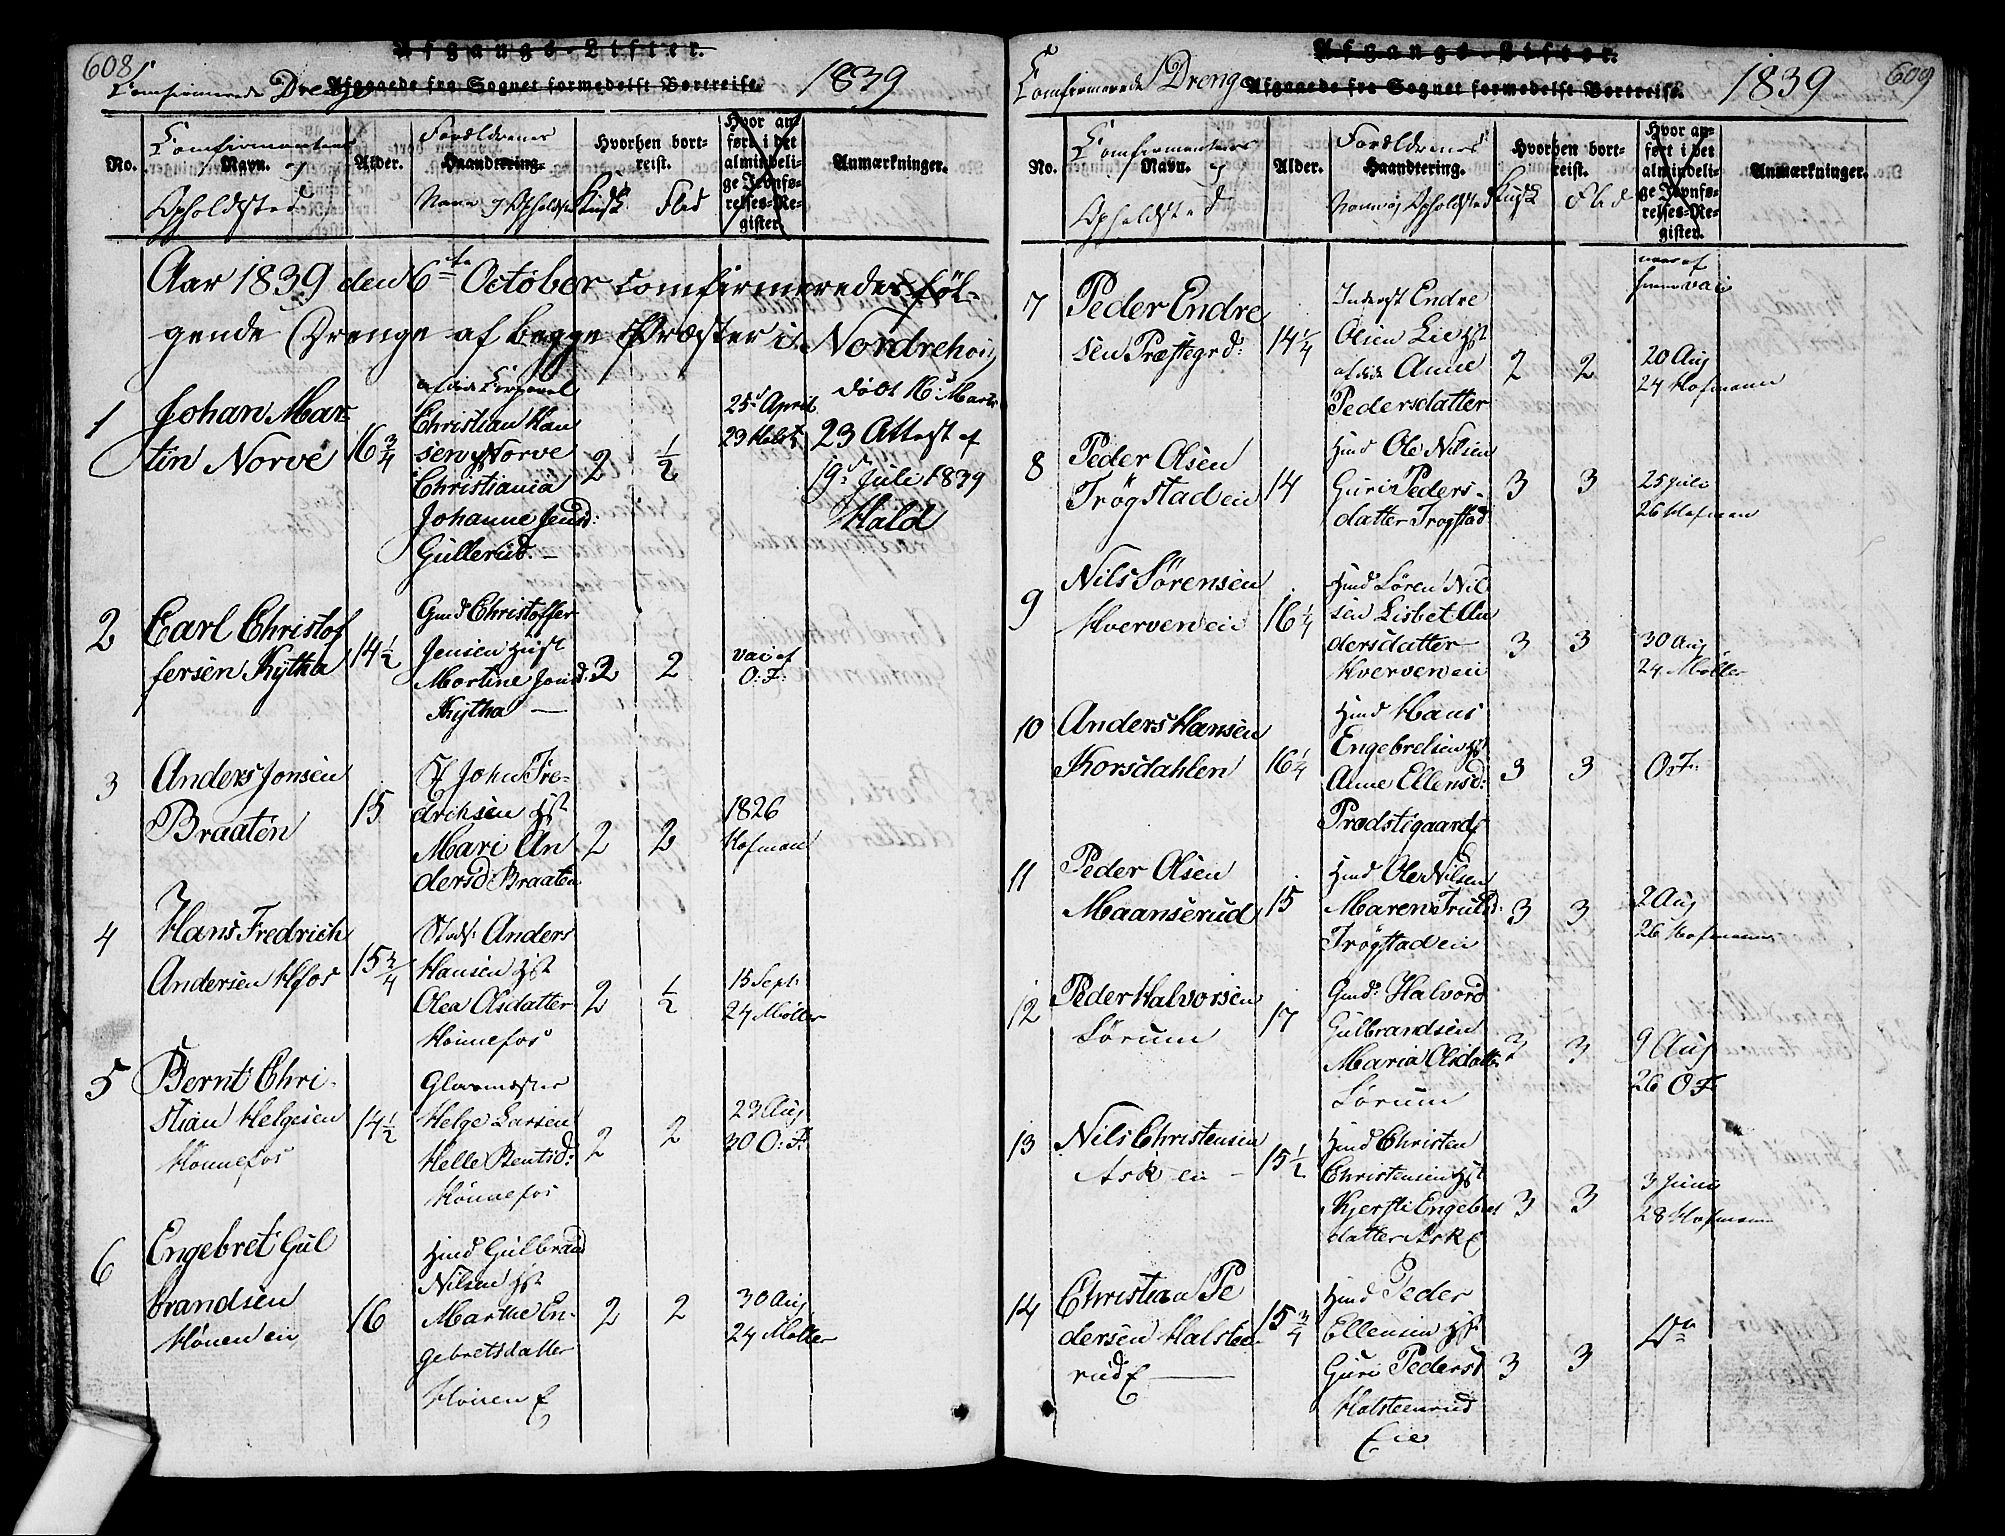 608
Afgangs-Lister.
Confirmerede Drenge
Afgaaede fra Sognet formedelst Bortreise.
1839
No.
Confirmantens
Navn. og
Opholdsted
Alder.
Forældrenes
Haandtering.
Navn og Opholdst
Hvorhen bort-
reist.
Kudsk Flid
Hvor an-
ført i det
almindeli-
ge Jevnfø-
relses-Re-
gister.
Anmærkninger.
Aar 1839 den 6te October comfirmeredes føl-
gende Drenge af begge Præster i Nordrehoug
1
Johan Mar-
tin Norve
16 3/4
afdøde Corporal
Christian Han
sen Norve
Christiania
Johanne Jensd:
Gullerud. —
2
1/2
25d April
23 Halst
døbt 16d Marts
23 Attest af
19d Juli 1839
Hald
2
Carl Christof
fersen Kytha
14 1/2
Gmd Christoffer
Jensen Hust
Martine Jonsd:
Kytha —
2
2
vac af
O:F:
3
Anders Jonsen
Braaten
15
John Fre-
driksen Hst
Mari An
dersd: Braaten
2
2
1826
Hofman
4
Hans Fredrich
Andersen Hfos
15 3/4
Anders
Hansen Hst
Olea Olsdatter
Hønnefos
2
1/2
15 Sept
24 Møller
5
Bernt Chri-
stian Helgesen
Hønnefos
14 1/2
Glasmester
Helge Larsen
Helle Bentsd:
Hønnefos
2
2
23 Aug
30 O:F:
6
Engebret Gul
brandsen
Hønen ein
16
Hmd Gulbrand
Nilsen Hst
Marthe En-
gebretsdatter
Hønen E
2
2
30 Aug
24 Møller
609
Afgangs-Lister.
Comfirmerede Dreng
Afgaaede fra Sognet formedelst Bortreise.
1839
No.
Comfirmantens
Navn. og
Opholdsted
Alder.
Forældrenes
Haandtering.
Navn og Opholdsted
Hvorhen bort-
reist.
Kudsk Flid
Hvor an-
ført i det
almindeli-
ge Jevnfø-
relses-Re-
gister.
Anmærkninger.
7
Peder Endre
sen Præstegrd:
14 1/4
Inderst Endre
Olsen Lie Hst
afdøde Anne
Pedersdatter
2
2
vac
20 Aug
24 Hofmann
8
Peder Olsen
Trøgstad ein
14
Hmd Ole Nilsen
Guri Peders-
datter Trøgstad
3
3
25 Juli
26 Hofman
9
Nils Sørensen
Hverven ein
16 1/4
Hmd Søren Nil
sen Lisbet An
dersdatter
Hverven ein
3
3
30 Aug
24 Møller
10
Anders Hansen
Korsdahlen
16 1/4
Hmd Hans
Engebretsen Hst
Anne Ellensd:
Prædstigaard
3
3
O.F:
11
Peder Olsen
Maanserud
15
Hmd Ole Nilsen
Maren Trulsd:
Trøgstad ein
3
3
2 Aug
26 Hofmann
12
Peder Halvorsen
Sørum
17
Gmd: Halvord
Gulbrandsen
Maria Olsdatter
Sørum
3
3
9 Aug
26 O F
13
Nils Christensen
Ask ein —
15 1/2
Hmd Christen
Christensen Hst
Kjersti Engebrets
datter Ask E
3
3
3 Juni
28 Hofmann
14
Christian Pe
dersen Halsteen
rud E —
15 3/4
Hmd Peder
Ellensen Hst
Guri Pedersd
Halsteenrud
Eie
3
3
Do